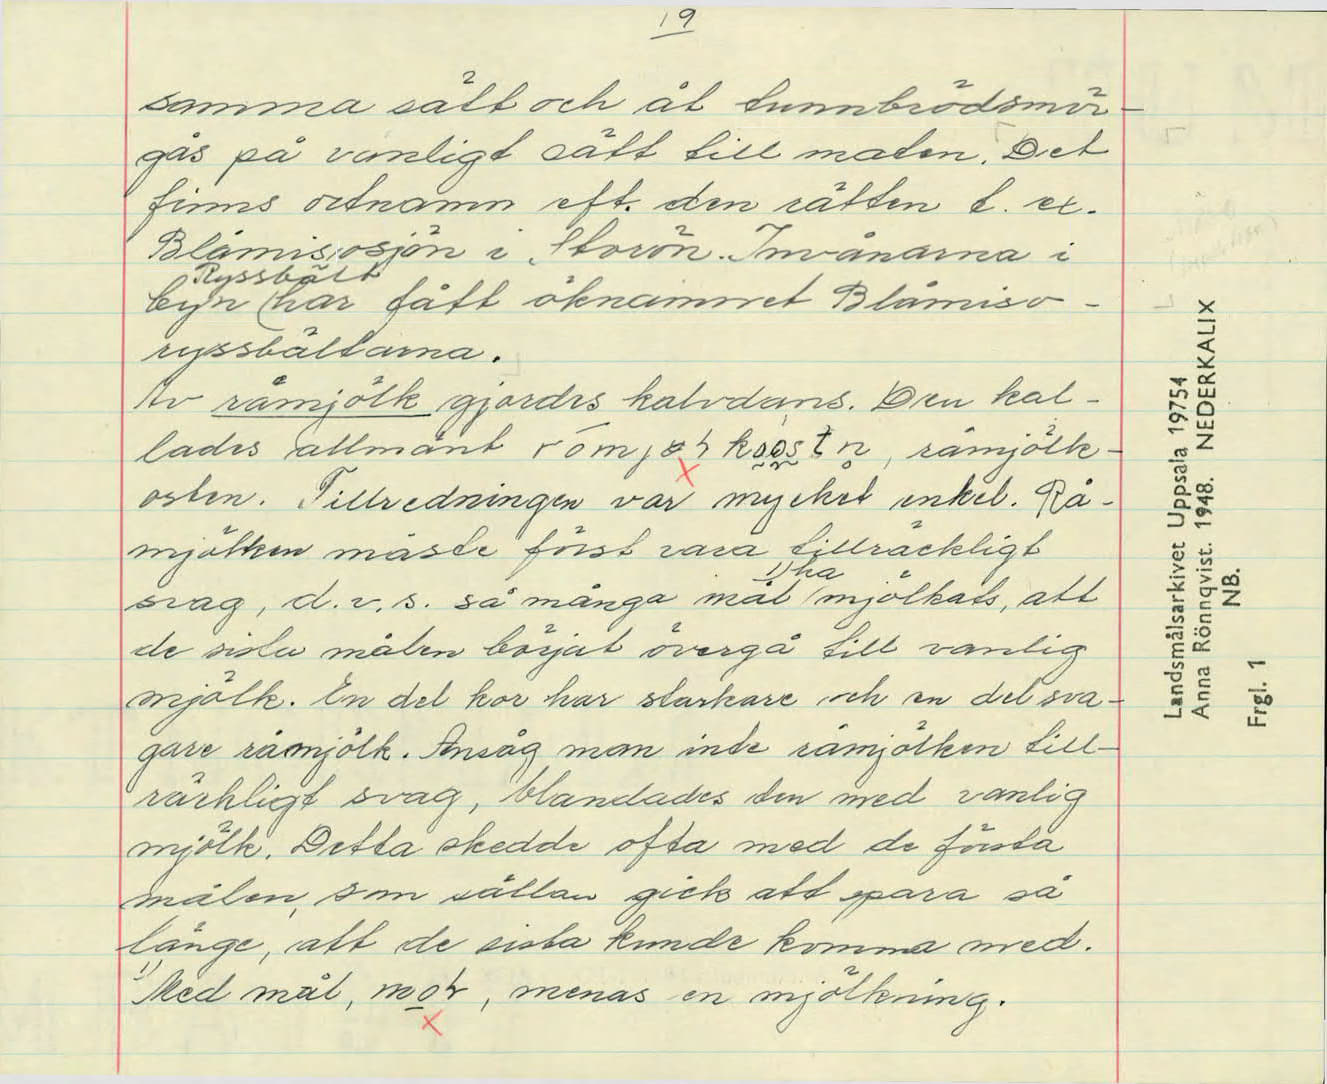 19
samma sätt och åt tunnbrödsmör-
gås på vanligt sätt till maten. Det
finns ortnamn eft. den rätten t. ex.
Blåmisosjön i Storön. Invånarna i
Ryssbält
byn (har fått öknamnet Blåmiso-
ryssbältarna.
Av råmjölk gjordes kalvdans. Den kal-
lades allmänt , råmjölk-
osten. Tillredningen var mycket enkel. Rå-
mjölken måste först vara tillräckligt
svag, d.v.s. så många mål 1) ha mjölkats, att
de sista målen börjat övergå till vanlig
mjölk. En del kor har starkare och en del sva-
gare råmjölk. Ansåg man inte råmjölken till-
räckligt svag, blandades den med vanlig
mjölk. Detta skedde ofta med de första
målen, som sällan gick att spara så
länge, att de sista kunde komma med.
1) Med mål, , menas en mjölkning.
Landsmålsarkivet Uppsala 19754
Anna Rönnqvist. 1948. NEDERKALIX
NB.
Frgl. 1